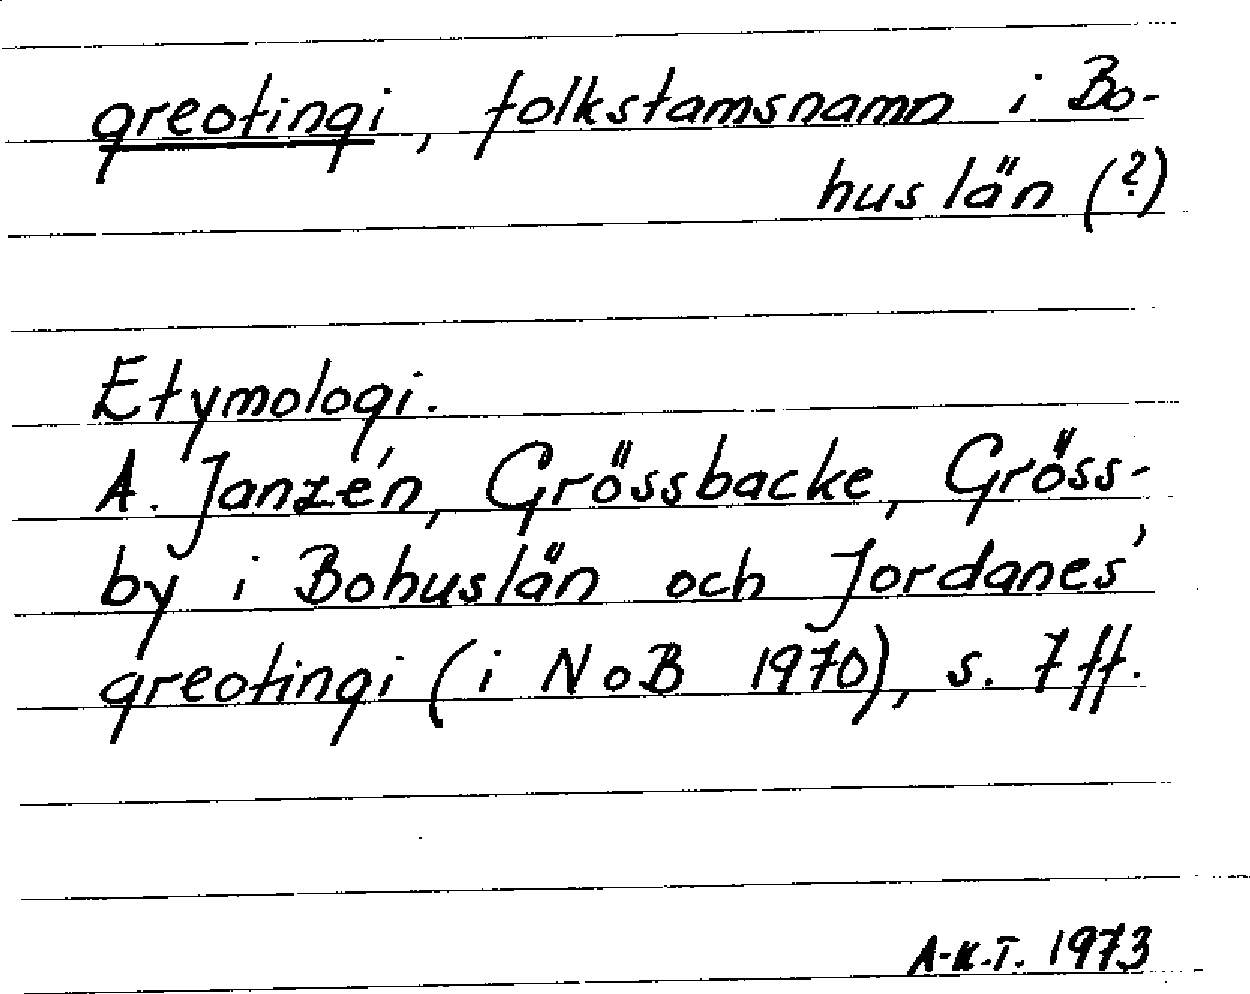 greotingi, folkstamsnamn i Bo-
hus län (?)
Etymologi.
A. Janzén, Grössbacke, Gröss-
by i Bohuslän och Jordanes'
greotingi (i NoB 1970), s. 7 ff.
A-K.T. 1973